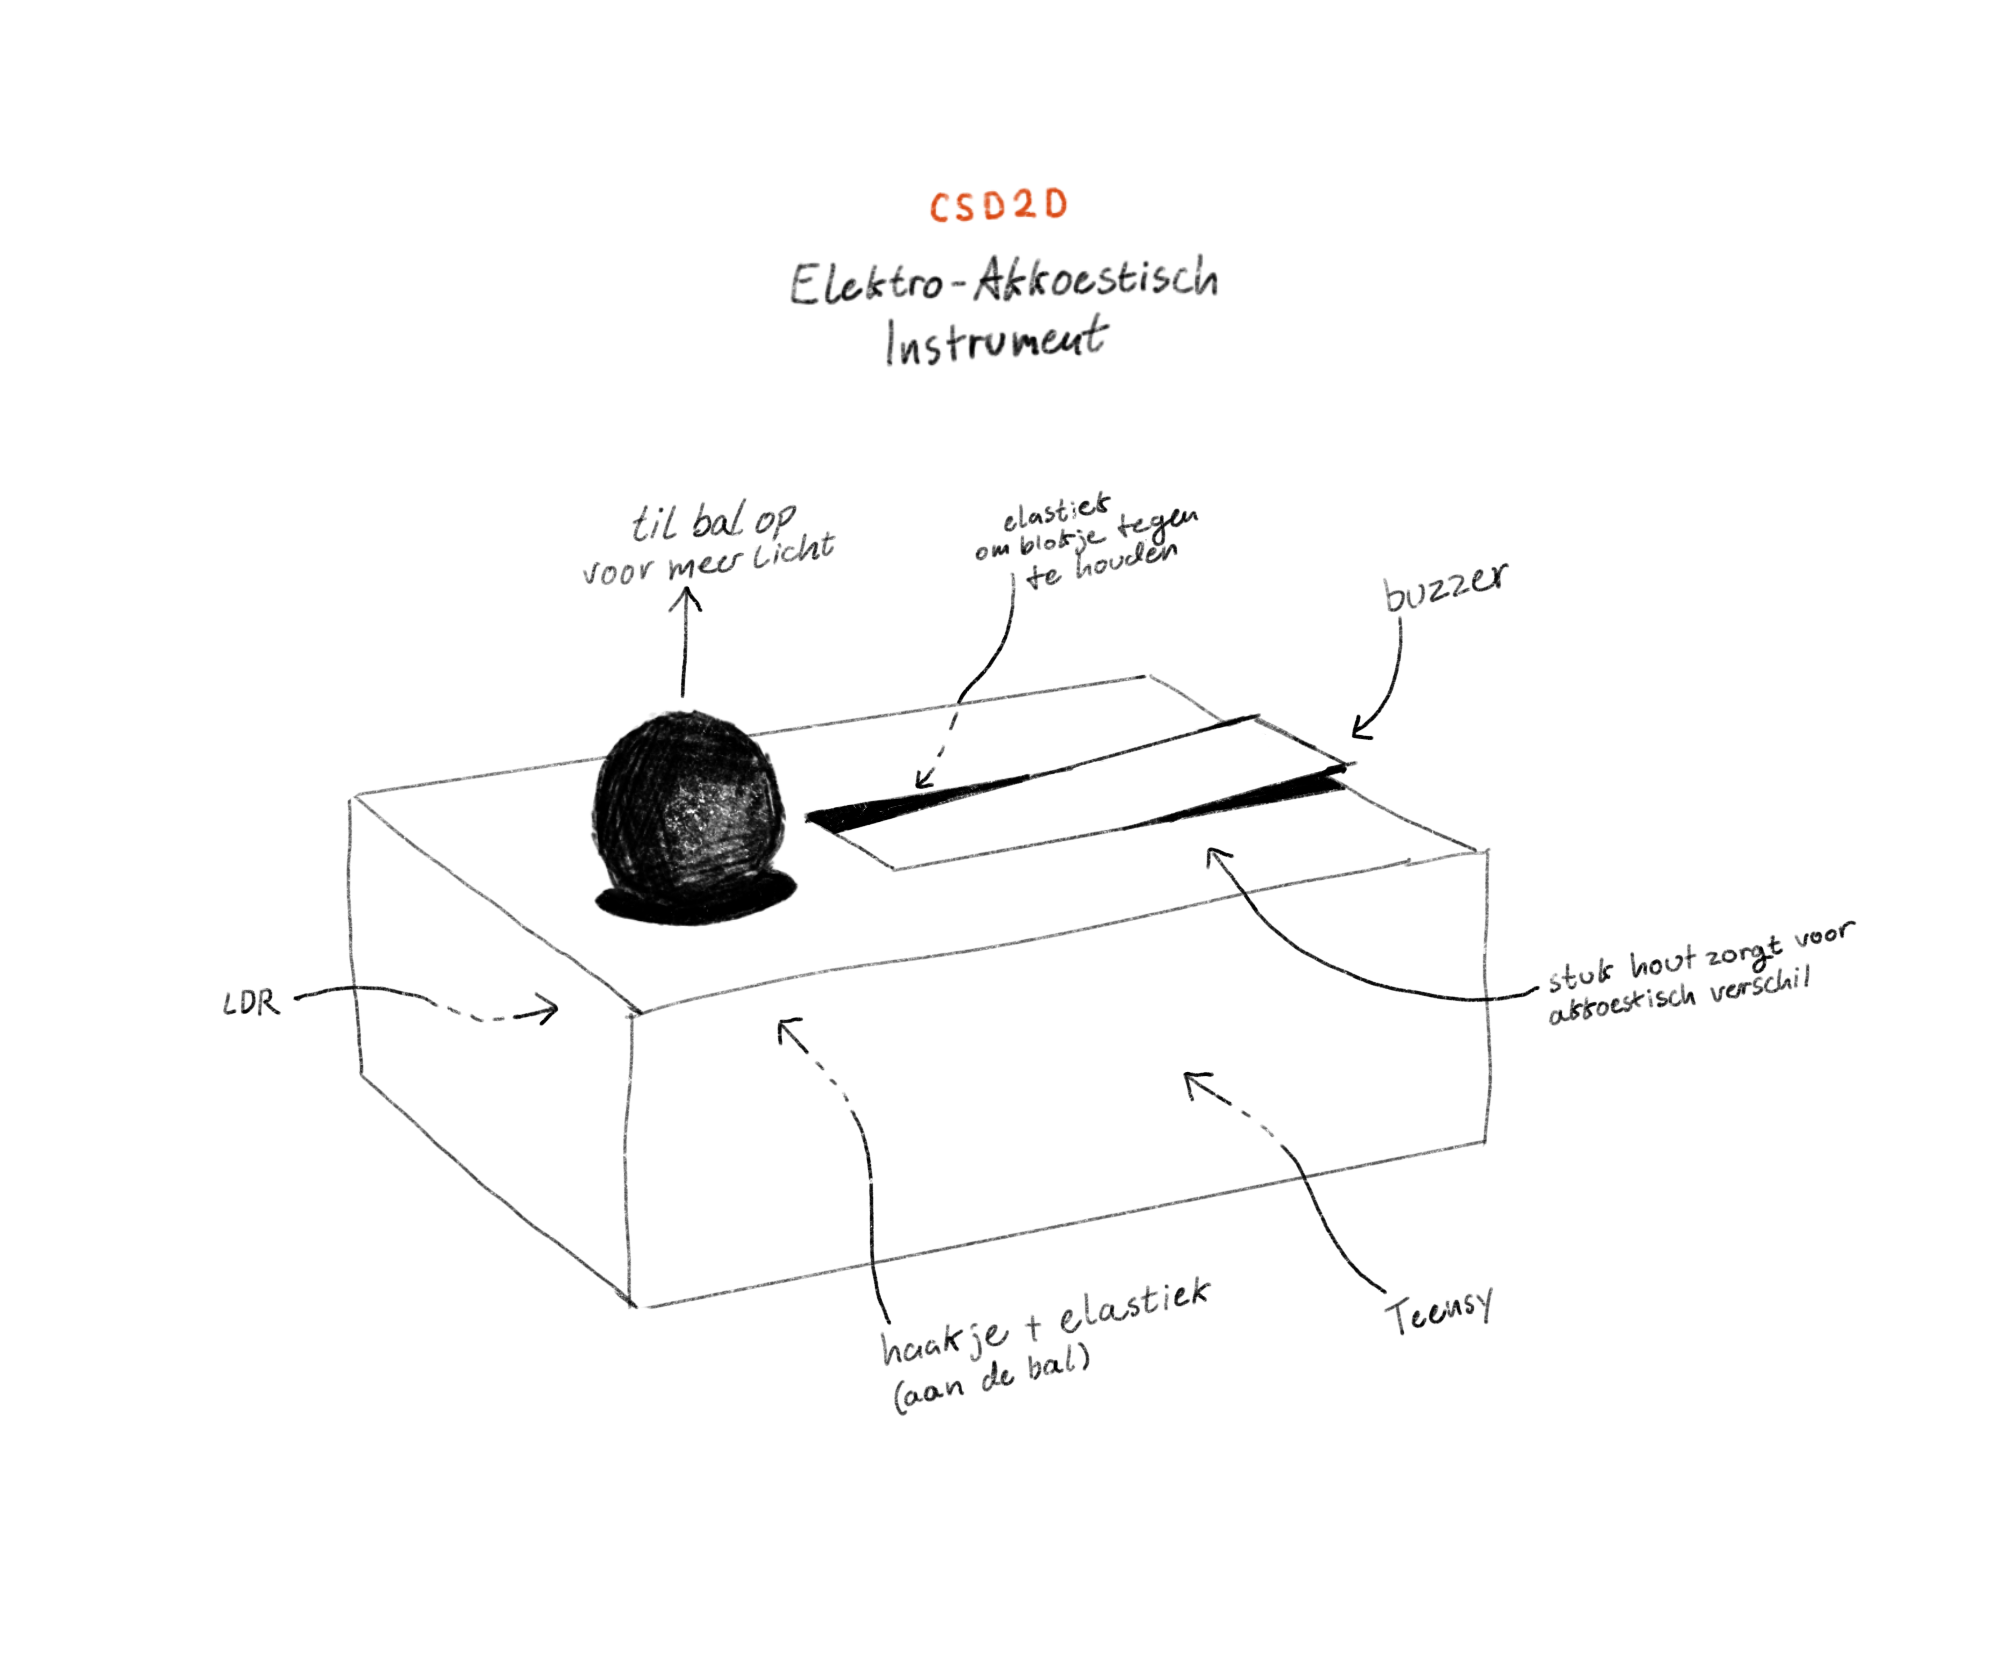 CSD2D
Elektro-Akkoestisch
Instrument
til bal op
voor meer licht
elastiek
om blokje tegen
te houden
buzzer
LDR
stuk hout zorgt voor
akkoestisch verschil
haakje + elastiek
(aan de bal)
Teensy